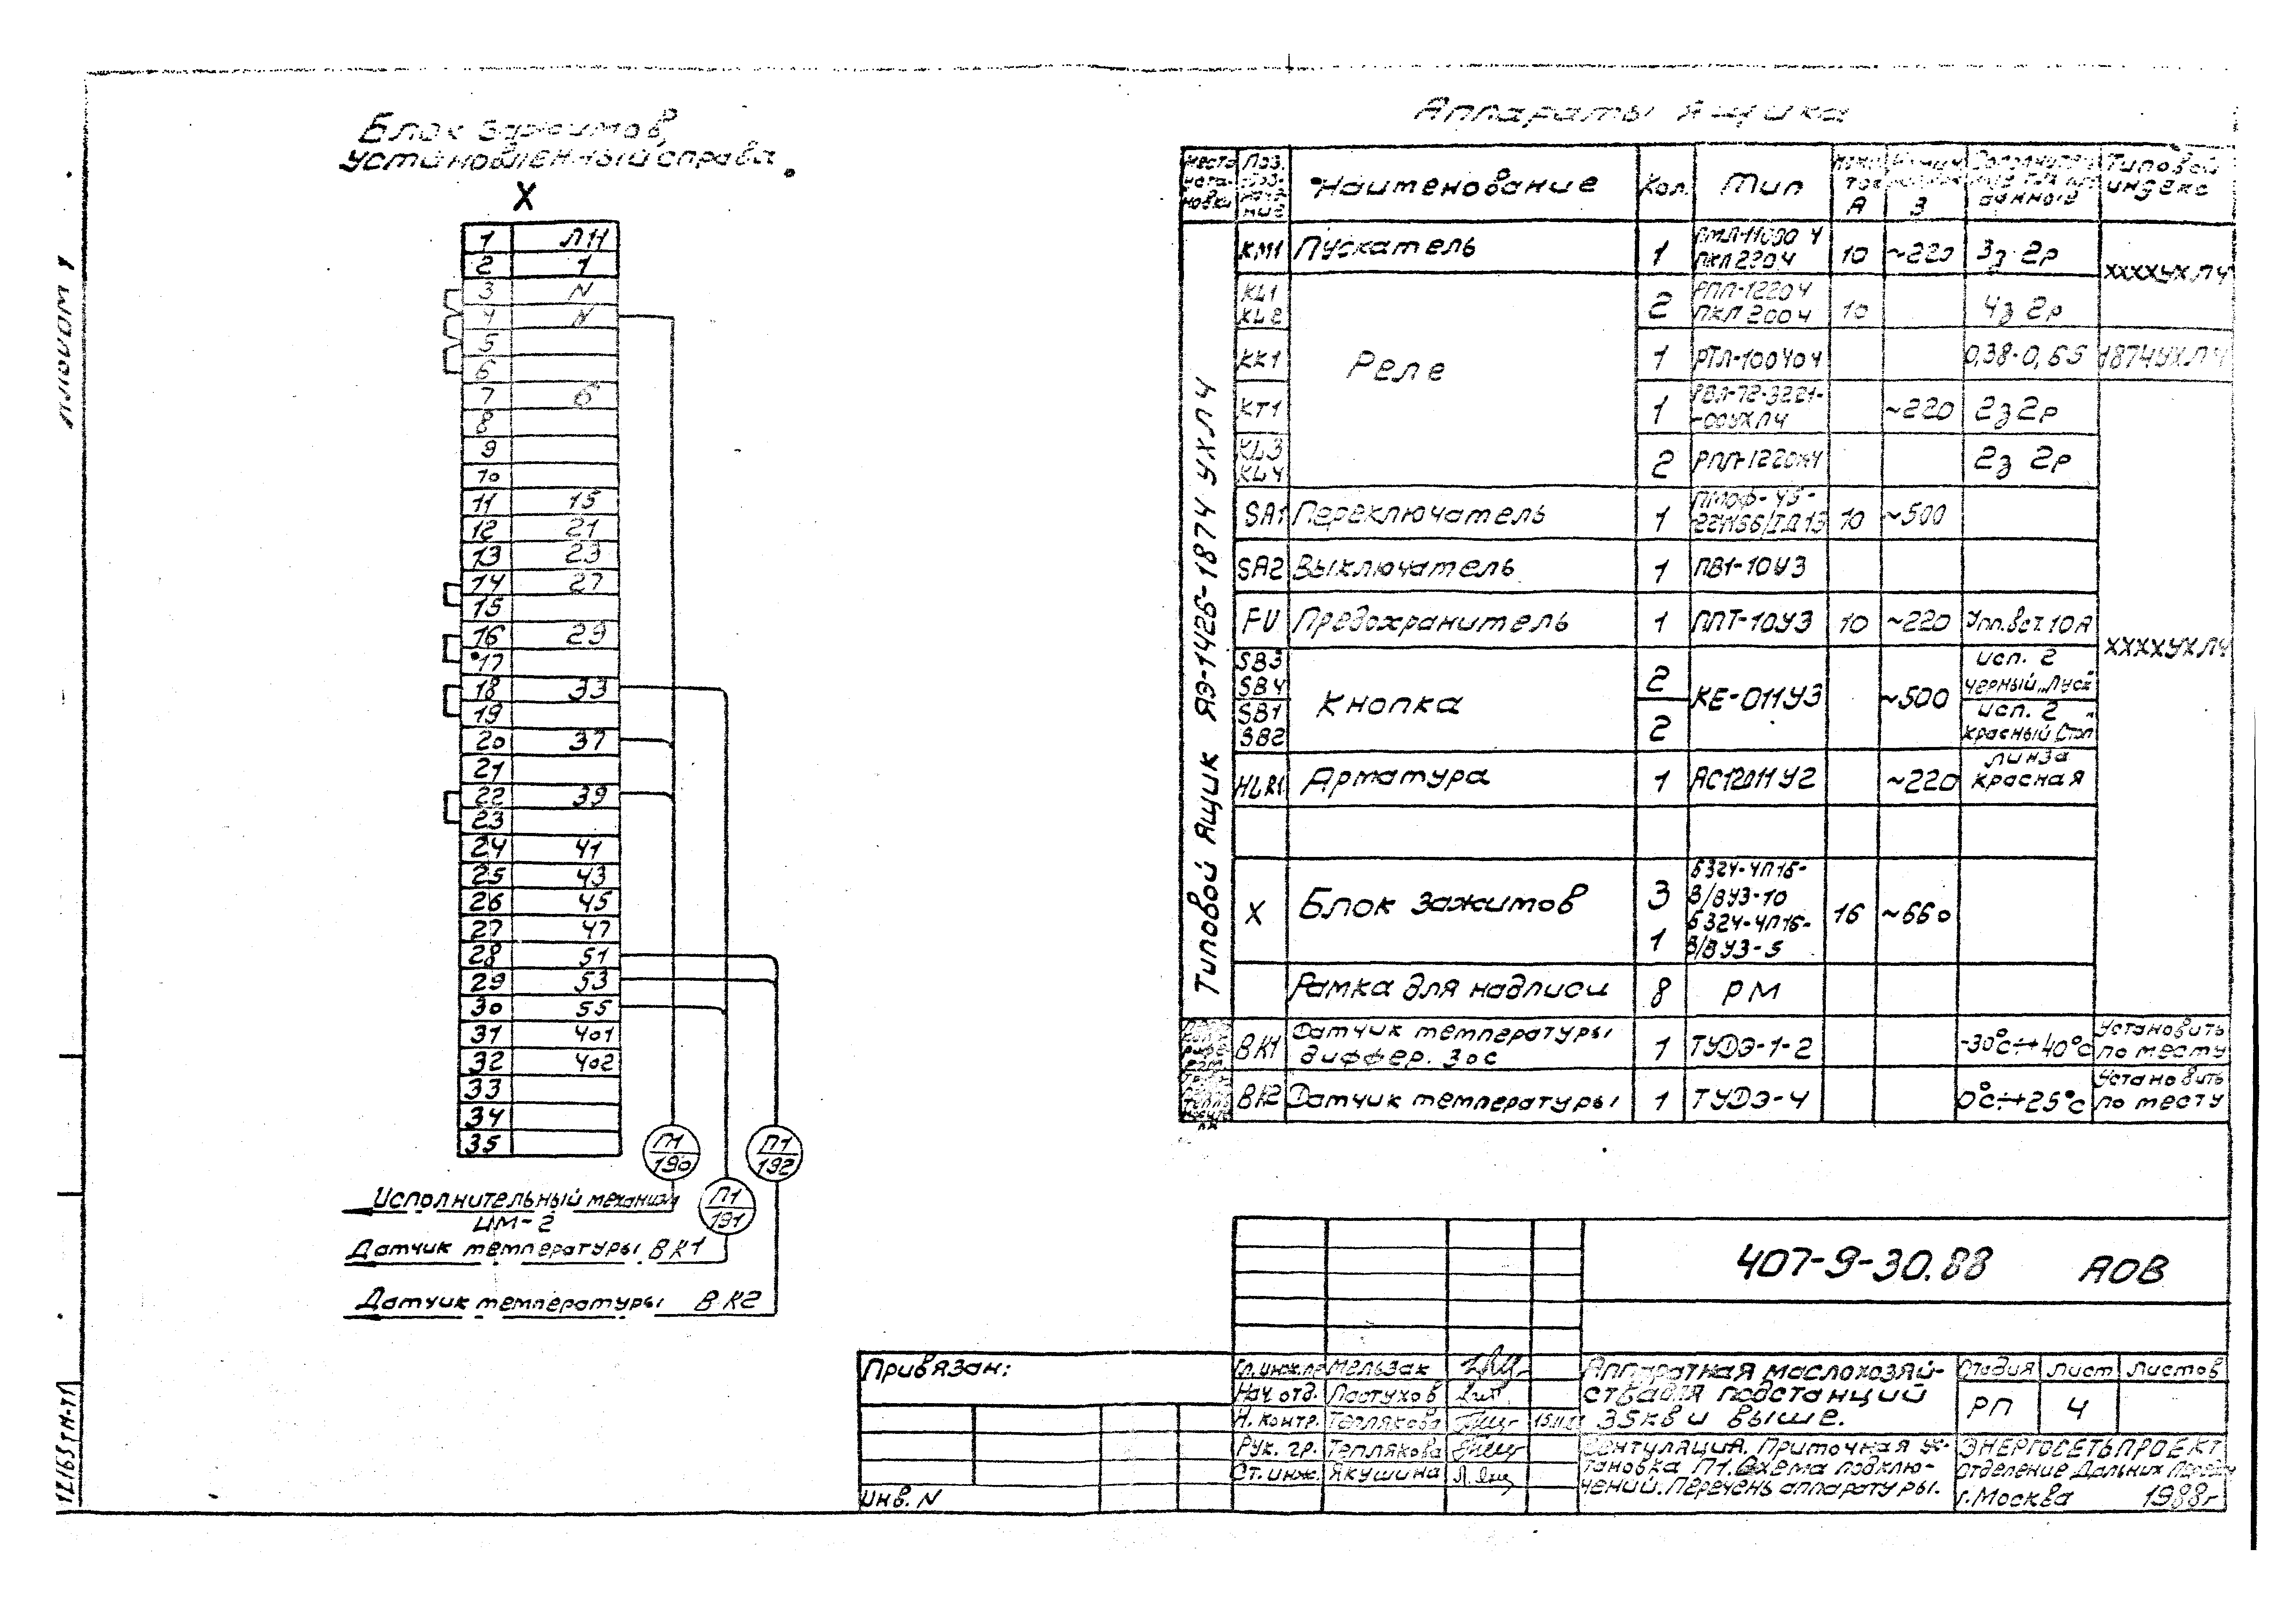 Альбом 1
Блок зажимов,
установленный справа.
X
1 Л11
2 1
3 N
4 N
5
6
7 6
8
9
10
11 15
12 21
13 23
14 27
15
16 29
17
18 33
19
20 37
21
22 39
23
24 41
25 43
26 45
27 47
28 51
29 53
30 55
31 401
32 402
33
34
35
П1
190
П1
192
П1
191
Исполнительный механизм
ИМ-2
Датчик температуры ВК1
Датчик температуры ВК2
Аппараты ящика
Наименование Кол. Тип Типовой
индекс
Типовой ящик ЯЭ-1426-1874 УХЛ4
КМ1 Пускатель 1 ПКЛ2204 10 ~220 3з 2р ХХХХУХЛ4
KL1
KL2 2 РПЛ-12204
ПКЛ2004 10 4з 2р
Реле
КК1 1 РТЛ-100404 0,38-0,65 1874УХЛ4
КТ1 1 РВЛ-72-3221-
-00УХЛ4 ~220 2з 2р
KL3
KL4 2 2з 2р
SA1 Переключатель 1 10 ~500
SA2 Выключатель 1 ПВ1-10У3
FU Предохранитель 1 ППТ-10У3 10 ~220 Iпл.вст.10А
ХХХХУХЛ4
SB3
SB4 Кнопка 2 КЕ-011У3 ~500 исп. 2
черный „Пуск"
SB1
SB2 2 исп. 2
красный „Стоп"
HLR1 Арматура 1 АС12011У2 ~220 линза
красная
X Блок зажимов 3 Б324-4П16-
В/ВУ3-10
1 Б324-4П16-
В/ВУ3-5 16 ~660
Рамка для надписи 8 РМ
ВК1 Датчик температуры
диффер. 3ос 1 ТУДЭ-1-2 -30°с÷+40°с Установить
по месту
ВК2 Датчик температуры 1 ТУДЭ-4 0°с÷+25°с Установить
по месту
407-9-30.88 АОВ
Привязан:
Инв. N
Гл.инж.пр Мельзак
Нач. отд. Пастухов
Н. контр. Теплякова
Рук. гр. Теплякова
Ст. инж. Якушина
Аппаратная маслохозяй-
ства для подстанций
35кв и выше.
Стадия Лист Листов
РП 4
Вентуляция. Приточная ус-
тановка П1. Схема подклю-
чений. Перечень аппаратуры.
ЭНЕРГОСЕТЬПРОЕКТ
Отделение Дальних Передач
г. Москва 1988г
12165тм-т1